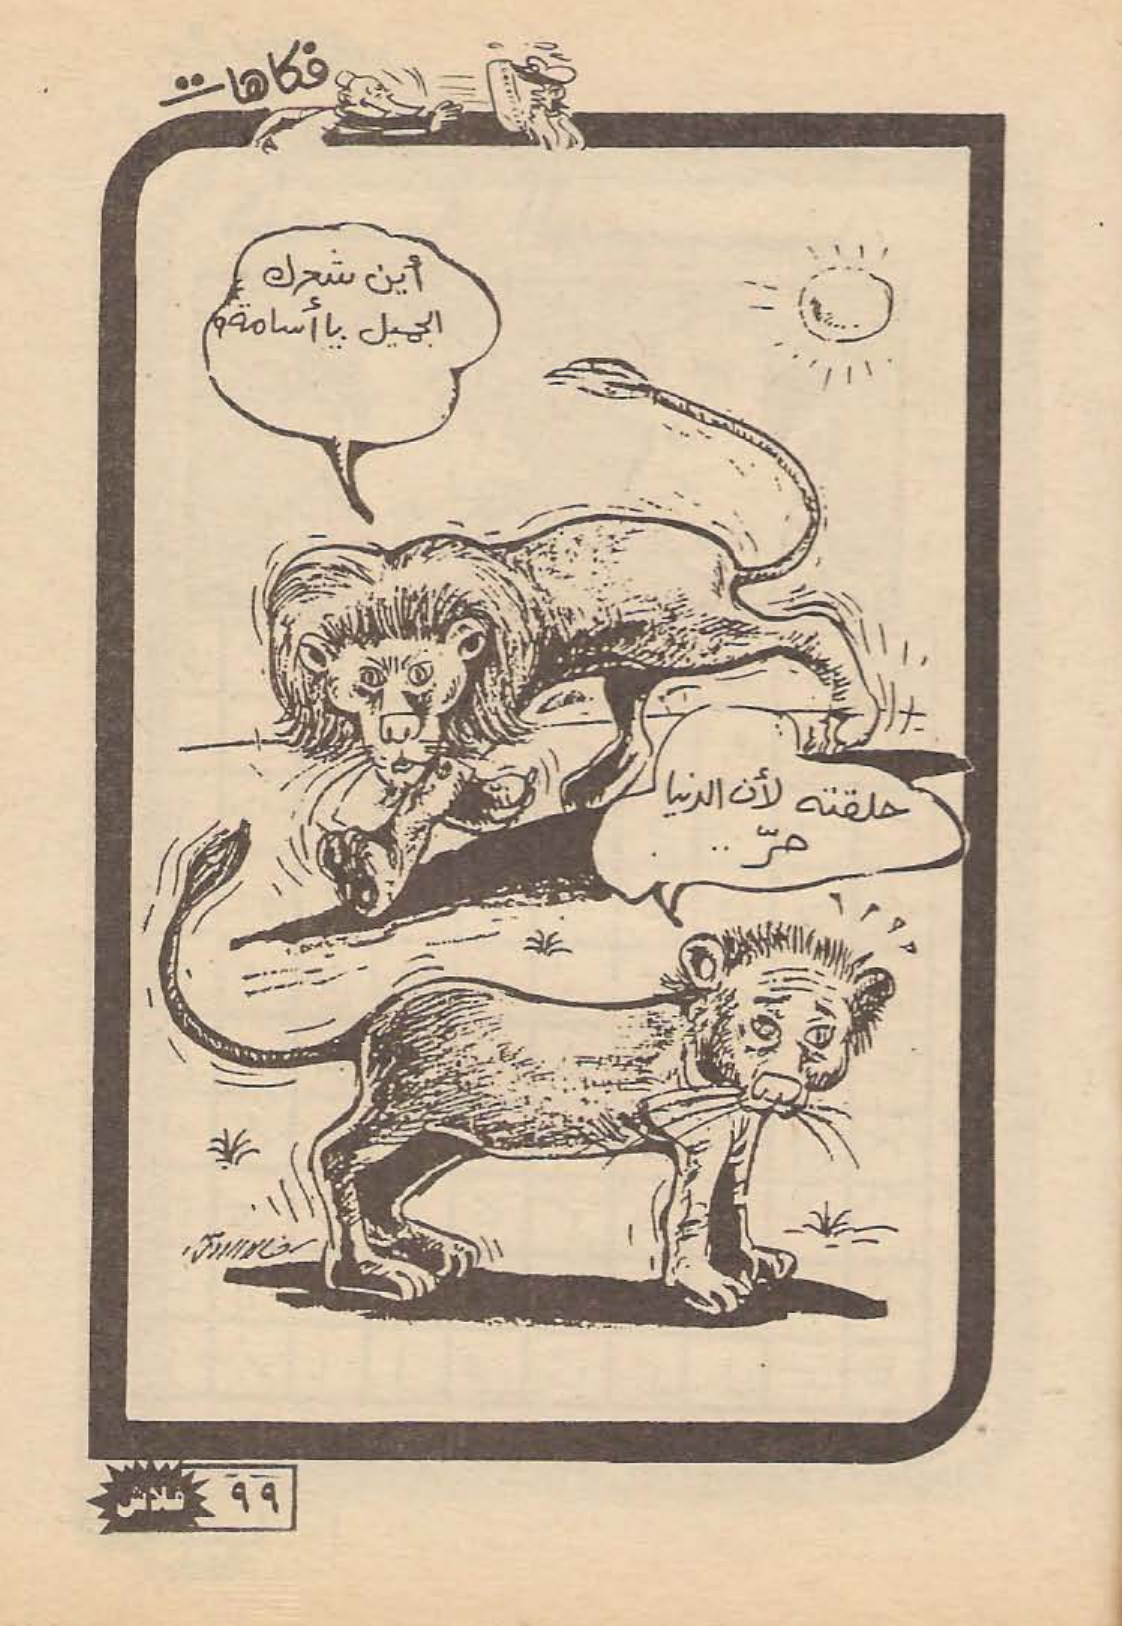 فكاهات
أين شعرك
الجميل يا أسامة؟
حلقته لأن الدنيا
حرّ..
فلاش ٩٩